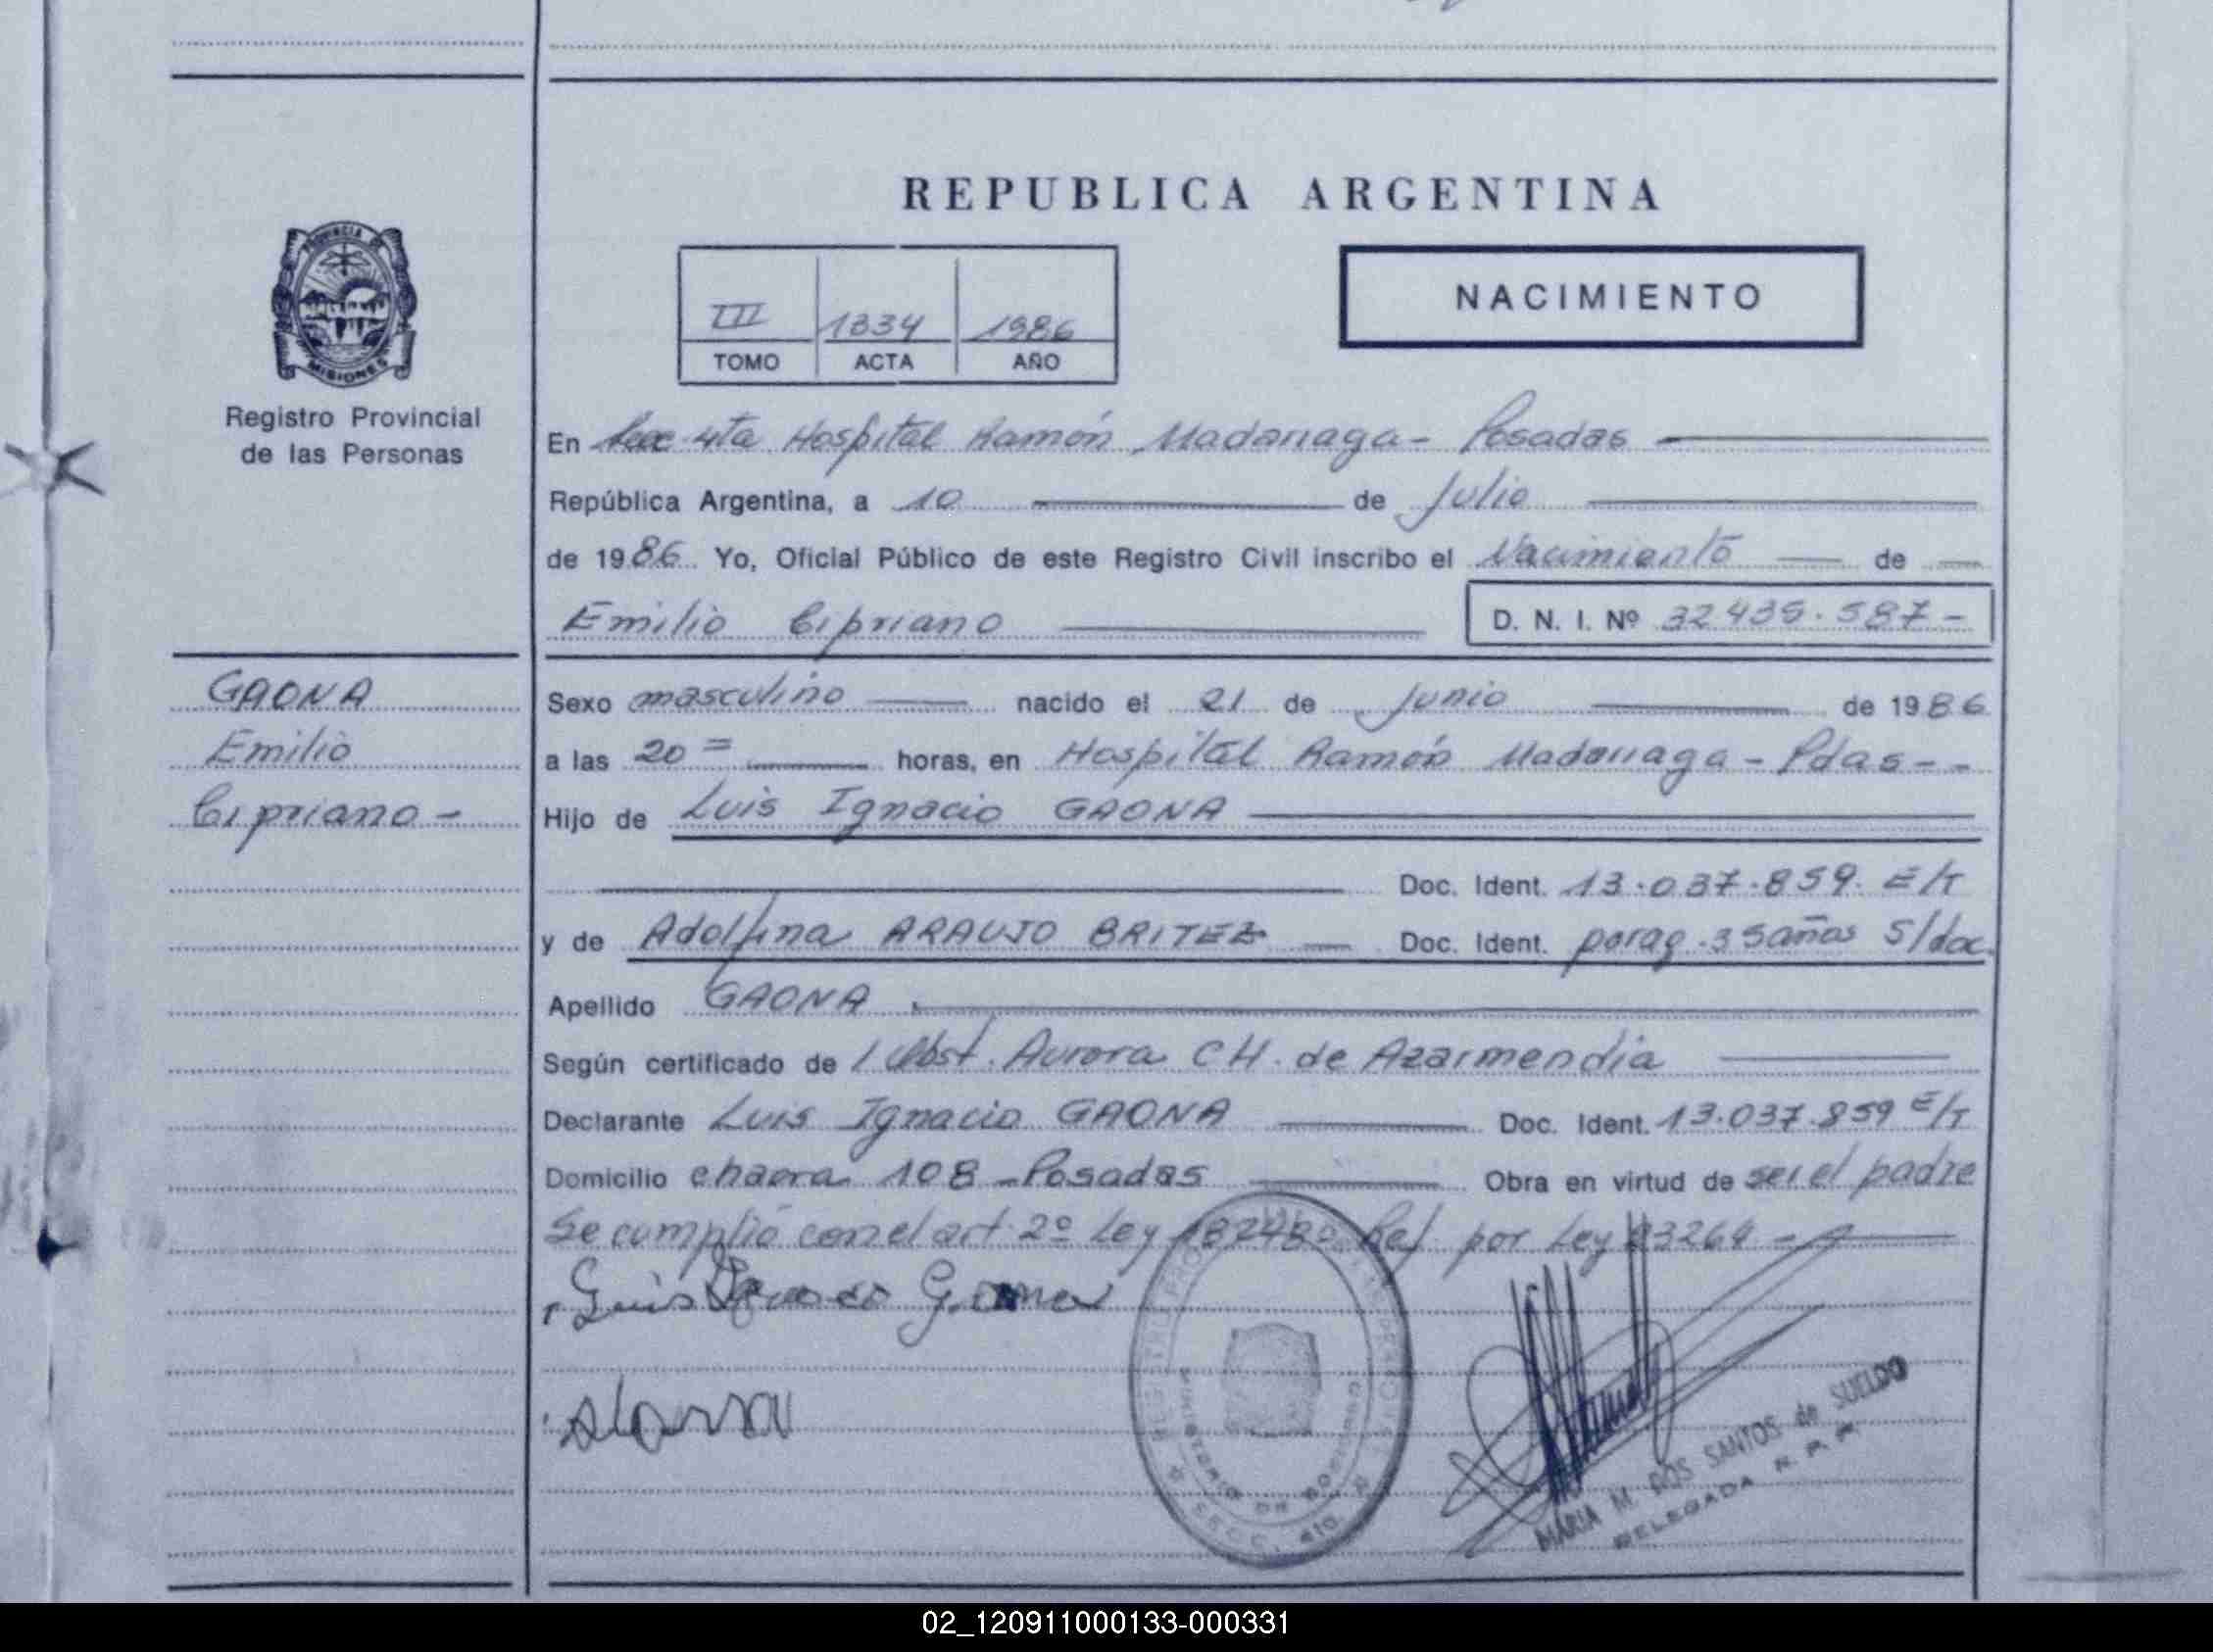 REPUBLICA ARGENTINA
PROVINCIA DE
MISIONES
Registro Provincial
de las Personas
III 1334 1986
TOMO ACTA AÑO
NACIMIENTO
En Secc 4ta Hospital Ramón Madariaga - Posadas
República Argentina, a 10 de Julio
de 1986. Yo, Oficial Público de este Registro Civil inscribo el Nacimiento de
Emilio Cipriano D. N. I. Nº 32.435.587-
GAONA
Emilio
Cipriano -
Sexo masculino nacido el 21 de Junio de 1986
a las 20= horas, en Hospital Ramón Madariaga - Pdas - -
Hijo de Luis Ignacio GAONA
Doc. Ident. 13.037.859. E/T
y de Adolfina ARAUJO BRITEZ Doc. Ident. parag. 35 años S/doc.
Apellido GAONA
Según certificado de Obst. Aurora CH. de Azarmendia
Declarante Luis Ignacio GAONA Doc. Ident. 13.037.859 E/T
Domicilio chacra 108 - Posadas Obra en virtud de ser el padre
Se cumplió con el art. 2º Ley 18248 Ref. por Ley 23264 -
Luis Ignacio Gaona
MINISTERIO DE GOBIERNO
SECC. 4ta
MARIA M. DOS SANTOS de SUELDO
DELEGADA R. P. P.
02_120911000133-000331